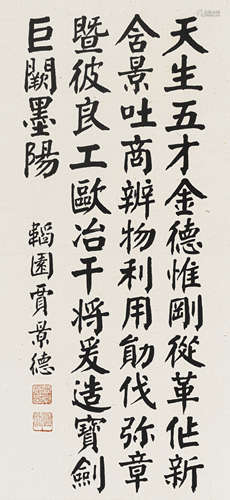 天生五才金德惟剛從革作新
含景吐商辨物利用勛伐弥章
暨彼良工歐冶干将爰造寶劍
巨闕墨陽
韜園賈景德